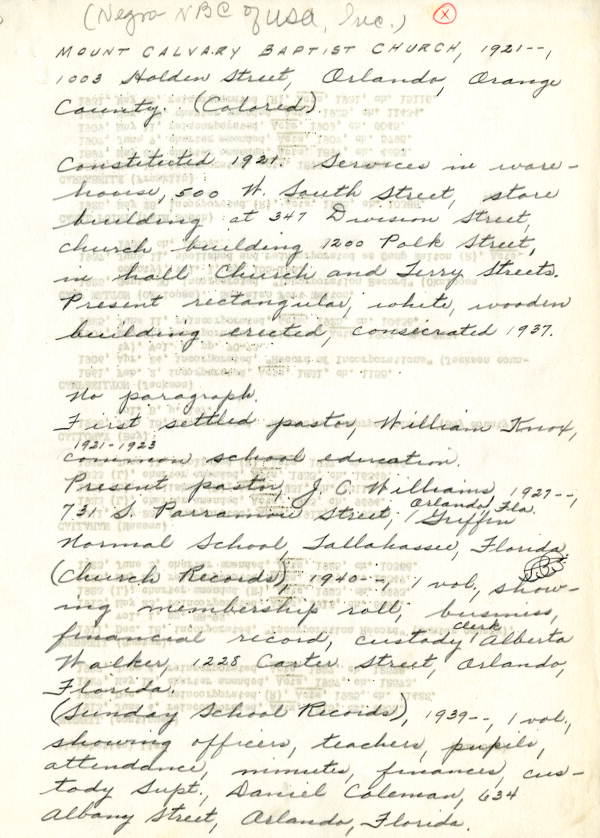 (Negro NBC of USA, Inc.) X
MOUNT CALVARY BAPTIST CHURCH, 1921--,
1003 Holden Street, Orlando, Orange
County. (Colored).
Constituted 1921. Services in ware-
house, 500 W. South Street, store
building at 347 Division Street,
church building 1200 Polk Street,
in hall Church and Terry Streets.
Present rectangular, white, wooden
building erected, consecrated 1937.
No paragraph.
First settled pastor, William Knox,
1921-1923
common school education.
Present pastor, J. C. Williams, 1927--,
731 S. Parramore Street, Orlando, Fla. Griffin
Normal School, Tallahassee, Florida
(Church Records), 1940--, 1 vol, show-
ing membership roll, business,
financial record, custody clerk Alberta
Walker, 1228 Carter Street, Orlando,
Florida.
(Sunday School Records), 1939--, 1 vol.,
showing officers, teachers, pupils,
attendance, minutes, finances, cus-
tody Supt., Daniel Coleman, 634
Albany Street, Orlando, Florida.